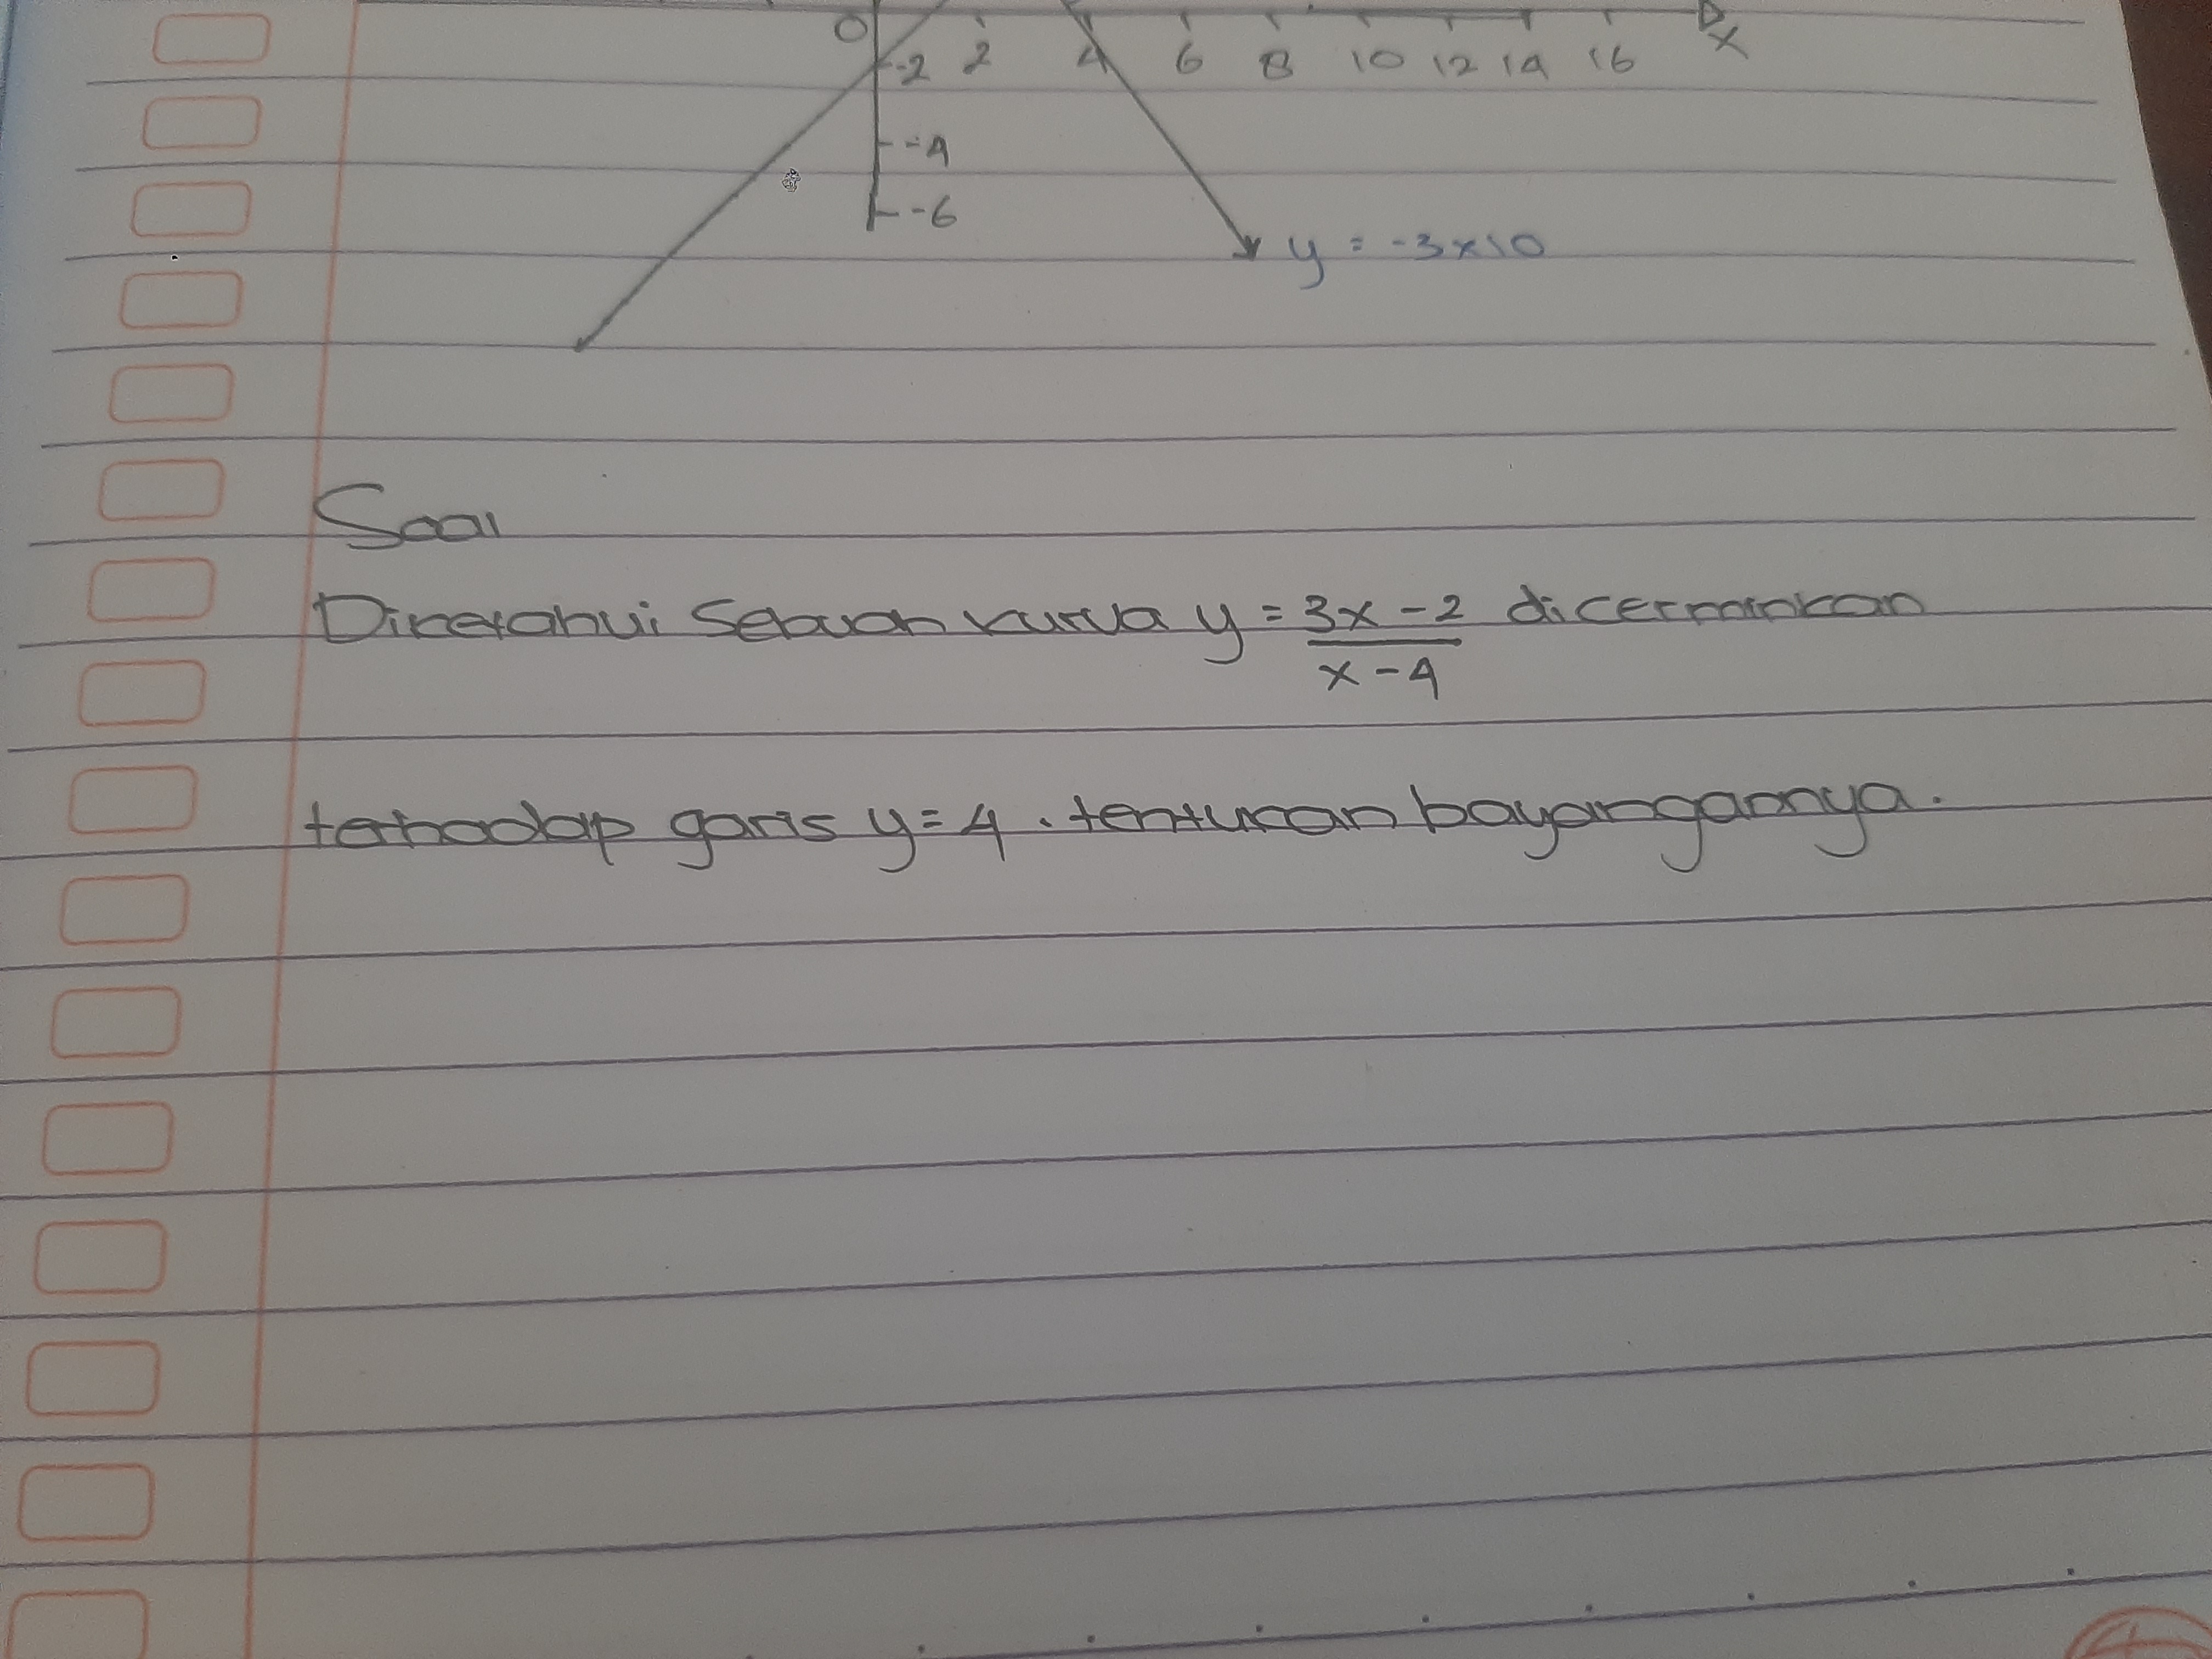 O
-2
-4
-6
2 4 6 8 10 12 14 16 X
y = -3x10
Soal
Diketahui sebuah kurva y = 3x - 2 dicerminkan
x - 4
terhadap garis y = 4 . tentukan bayanganya.